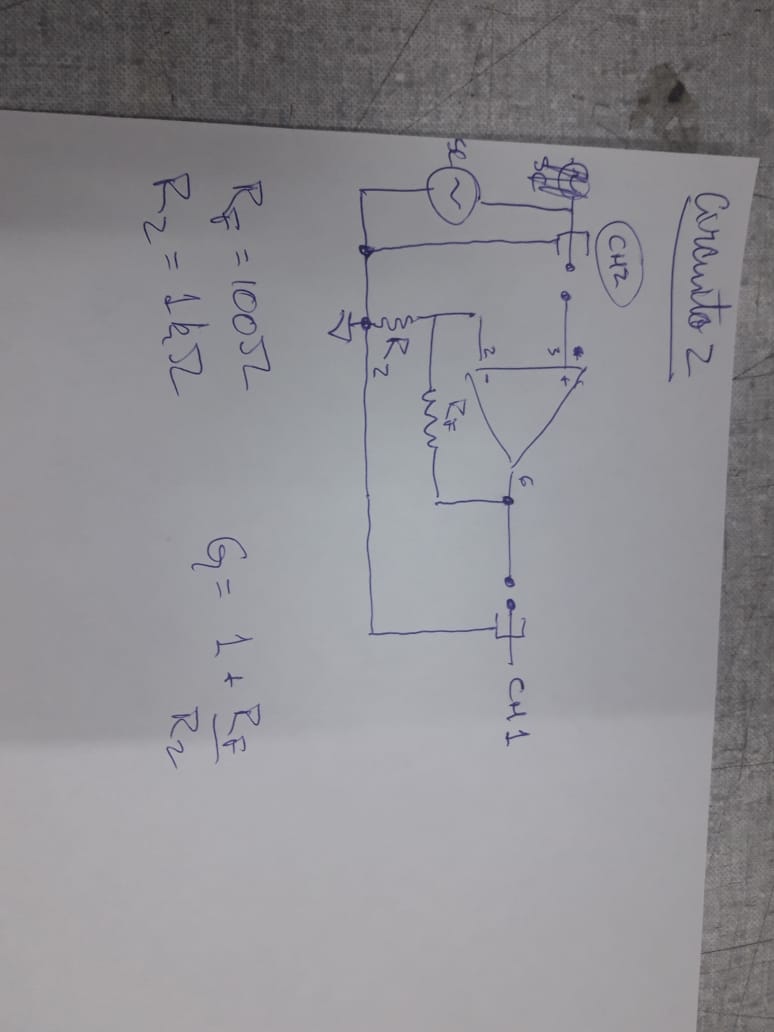 Circuito 2
CH2
3
+
2
-
6
CH1
RF
R2
RF = 100Ω
R2 = 1kΩ
G = 1 + RF
R2